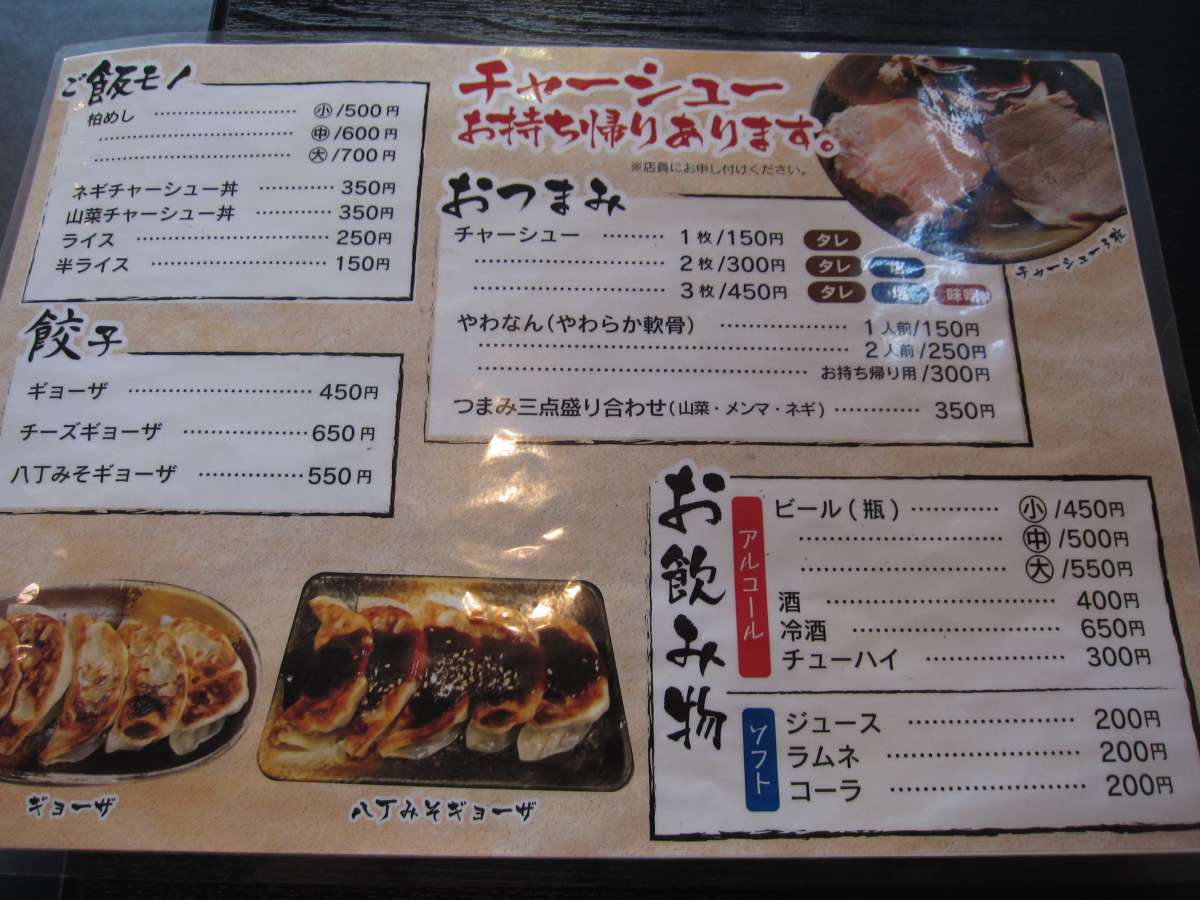 ご飯モノ
柏めし ㊙小/500円
㊥/600円
大/700円
ネギチャーシュー丼 350円
山菜チャーシュー丼 350円
ライス 250円
半ライス 150円
餃子
ギョーザ 450円
チーズギョーザ 650円
八丁みそギョーザ 550円
ギョーザ
八丁みそギョーザ
チャーシュー
お持ち帰りあります。
※店員にお申し付けください。
チャーシュー3枚
おつまみ
チャーシュー 1枚/150円 タレ
2枚/300円 タレ 塩
3枚/450円 タレ 塩 味噌
やわなん(やわらか軟骨) 1人前/150円
2人前/250円
お持ち帰り用/300円
つまみ三点盛り合わせ(山菜・メンマ・ネギ) 350円
お飲み物
アルコール
ビール(瓶) 小/450円
㊥/500円
大/550円
酒 400円
冷酒 650円
チューハイ 300円
ソフト
ジュース 200円
ラムネ 200円
コーラ 200円